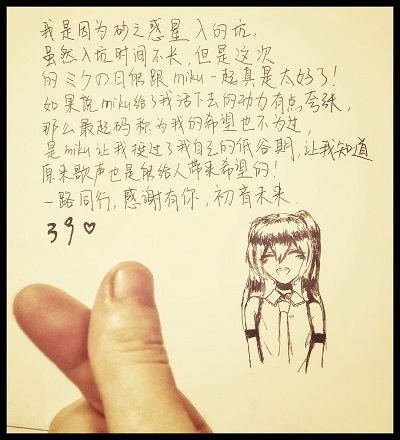 我是因为砂之惑星入的坑,
虽然入坑时间不长,但是这次
的ミクの日能跟miku一起真是太好了!
如果说miku给了我活下去的动力有点夸张,
那么最起码称为我的希望也不为过,
是miku让我挺过了我自己的低谷期,让我知道
原来歌声也是能给人带来希望的!
一路同行,感谢有你,初音未来.
39♡